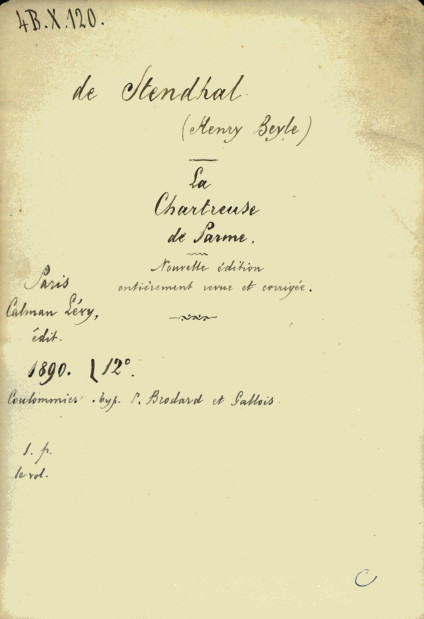 4B.X.120.
de Stendhal.
(Henry Beyle)
La
Chartreuse
de Parme.
Nouvelle édition
entièrement revue et corrigée.
Paris
Calman Lévy,
édit.
1890. 12°.
Coulommier. typ. P. Brodard et Gallois.
1. fr.
le vol.
C